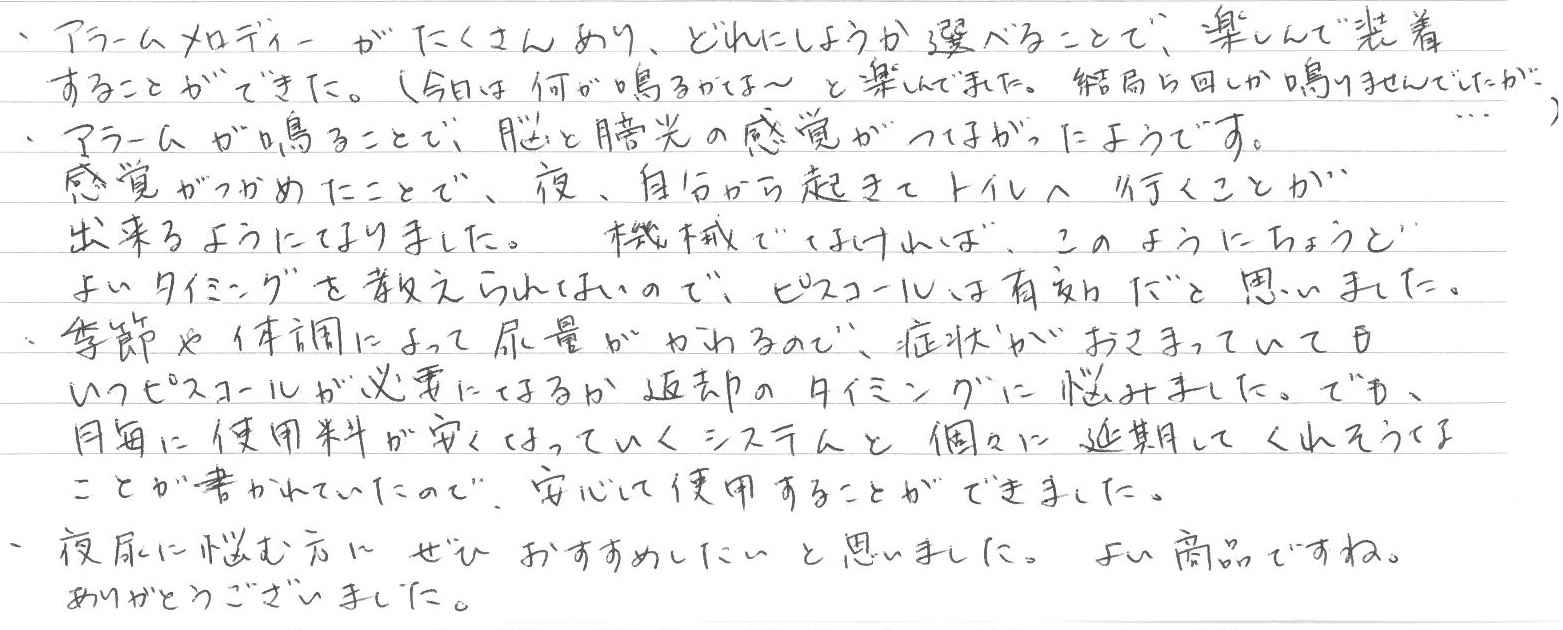 ・アラームメロディーがたくさんあり、どれにしようか選べることで、楽しんで装着
することができた。(今日は何が鳴るかな〜と楽しんでました。結局5回しか鳴りませんでしたが…
…)
・アラームが鳴ることで、脳と膀光の感覚がつながったようです。
感覚がつかめたことで、夜、自分から起きてトイレへ行くことが
出来るようになりました。 機械でなければ、このようにちょうど
よいタイミングを教えられないので、ピスコールは有効だと思いました。
・季節や体調によって尿量がかわるので、症状がおさまっていても
いつピスコールが必要になるか返却のタイミングに悩みました。でも、
月毎に使用料が安くなっていくシステムと個々に延期してくれそうな
ことが書かれていたので、安心して使用することができました。
・夜尿に悩む方にぜひおすすめしたいと思いました。 よい商品ですね。
ありがとうございました。